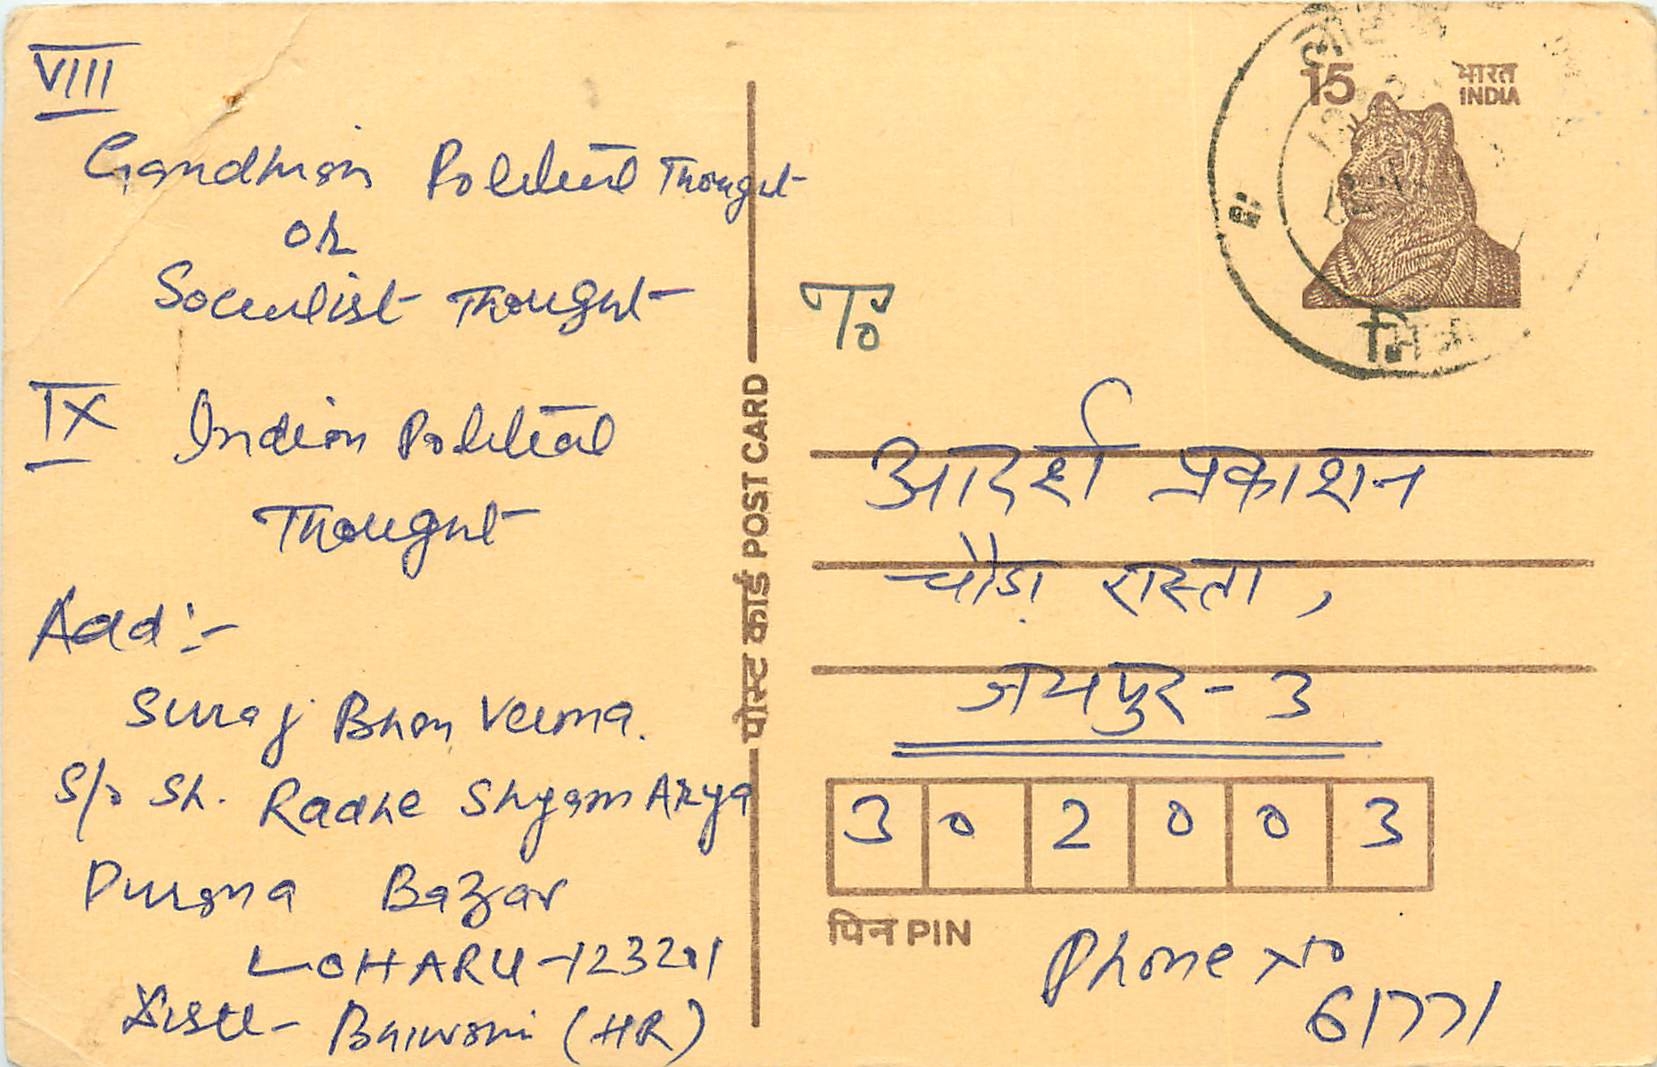 VIII
Gandhian Political Thought
or
Socialist Thought
IX Indian Political
Thought
Add:-
Suraj Bhan Verma.
S/o Sh. Radhe Shyam Arya
Purana Bazar
LOHARU-123201
Distt- Bhiwani (HR)
पोस्ट कार्ड POST CARD
15
भारत
INDIA
To
आदर्श प्रकाशन
चौड़ा रास्ता,
जयपुर-3
302003
पिन PIN
Phone No
61771